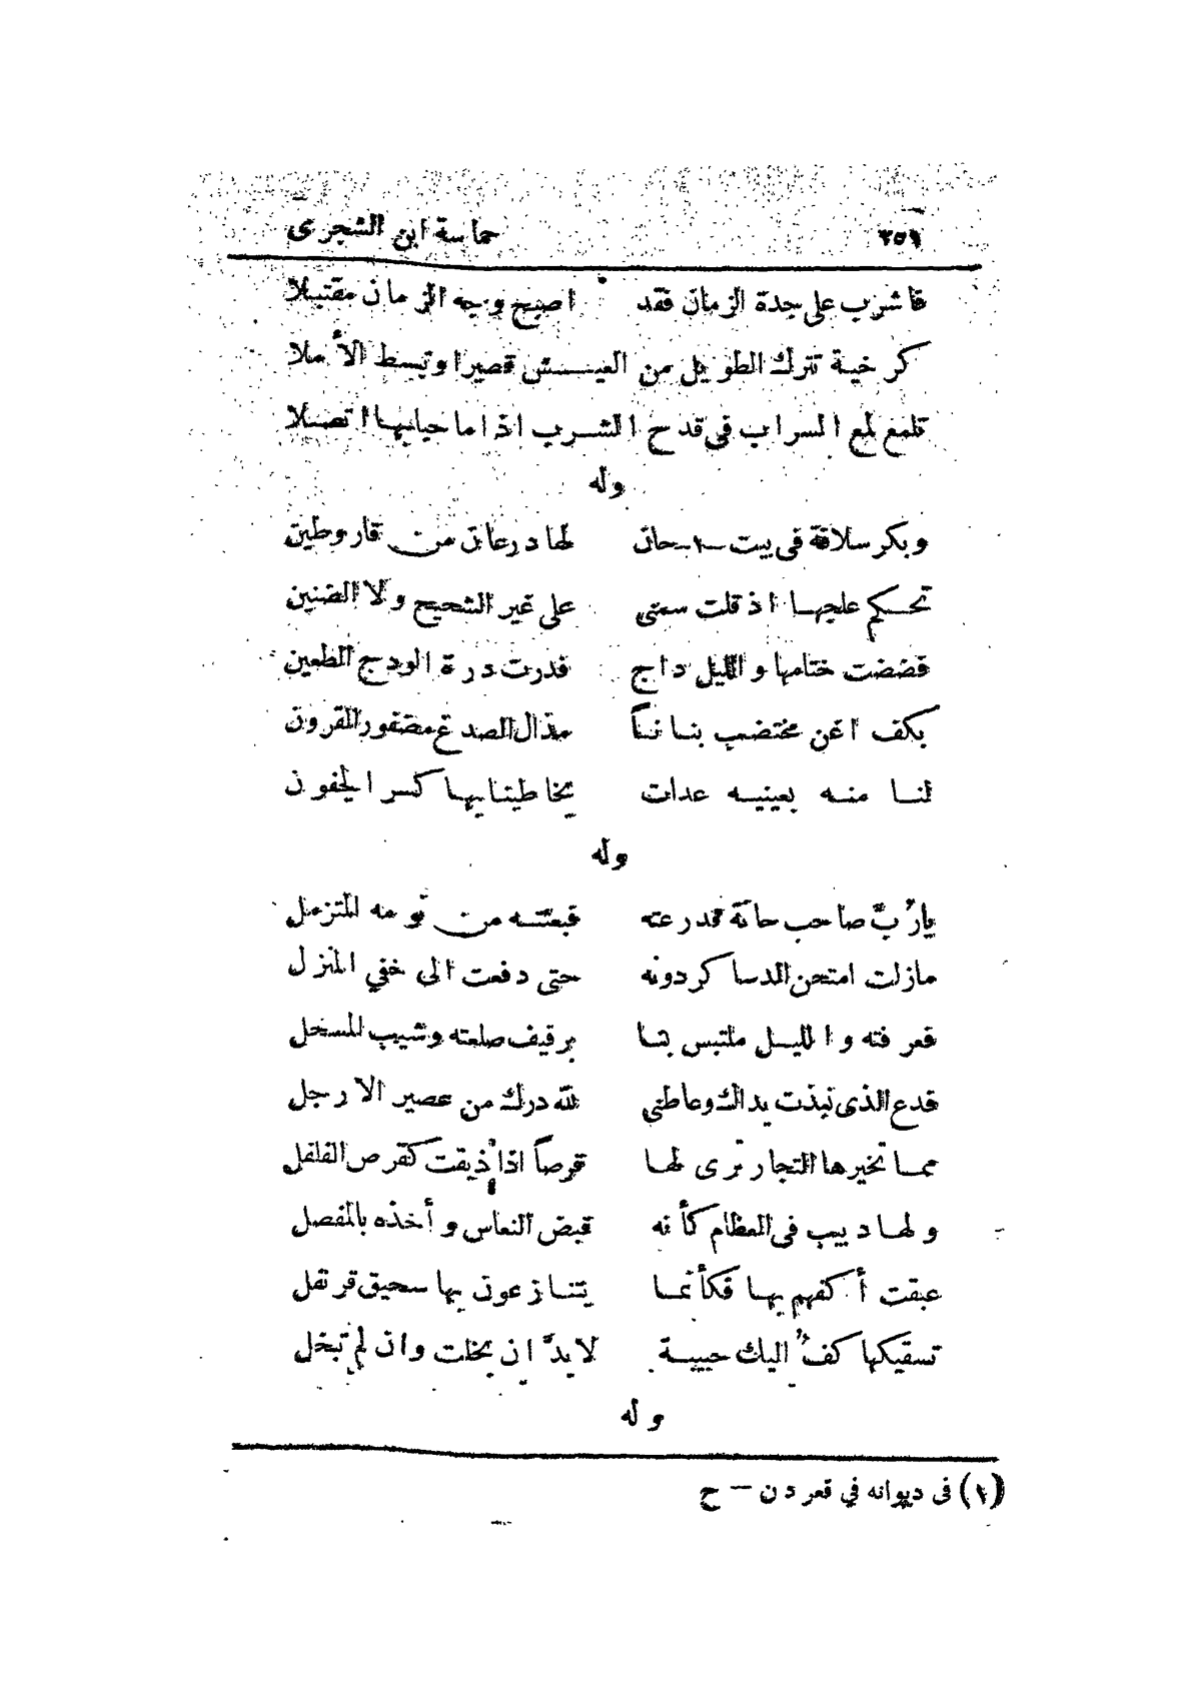 ٢٥٦ حماسة ابن الشجرى
فاشرب على جدة الزمان فقد اصبح وجه الزمان مقتبلا
كرخية تترك الطويل من العيـش قصيرا وتبسط الأملا
تلمع لمع السراب فى قدح الشرب اذا ما حبابها اتصلا
وله
وبكر سلافة فى بيت -١- حان لها درعان من قار وطين
تحكم علجها اذ قلت سمنى على غير الشحيح ولا الضنين
فضضت ختامها والليل داج فدرت درة الودج الطعين
بكف اغن مختضب بنانا مذال الصدغ مضفور القرون
لنا منه بعينيه عدات يخاطبنا بها كسر الجفون
وله
يا رُبَّ صاحب حانة قد رعته فبعثته من نومه المتزمل
مازلت امتحن الدساكر دونه حتى دفعت الى خفي المنزل
فعرفته والليل ملتبس بنا برفيف صلعته وشيب المسحل
فدع الذى نبذت يداك وعاطني لله درك من عصير الارجل
مما تخيرها التجار ترى لها قرصاً اذا ذيقت كقرص الفلفل
ولها دبيب فى العظام كأنه قبض النعاس وأخذه بالمفصل
عبقت أكفهم بها فكأنما يتنازعون بها سحيق قرنفل
تسقيكها كفٌّ اليك حبيبة لابدَّ ان بخلت وان لم تبخل
وله
(١) فى ديوانه في قعر دن — ح